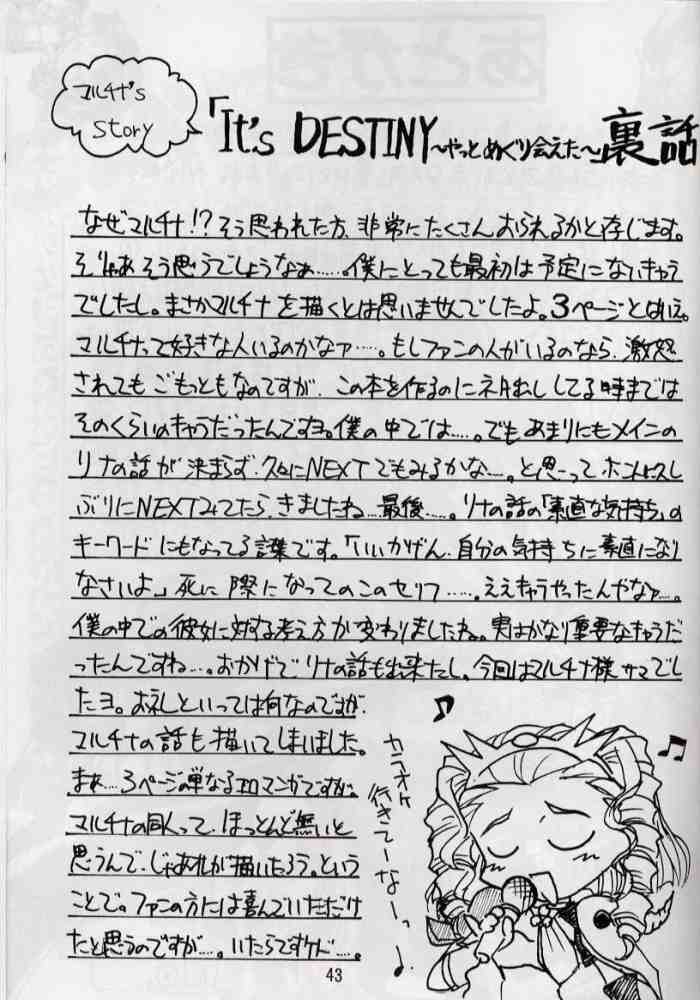 マルチナ's
Story
「It's DESTINY～やっとめぐり会えた～」裏話
なぜマルチナ!?そう思われた方、非常にたくさんおられるかと存じます。
そりゃあそう思うでしょうなぁ……。僕にとっても最初は予定にないキャラ
でしたし。まさかマルチナを描くとは思いませんでしたよ。3ページとはいえ。
マルチナって好きな人いるのかなァ……。もしファンの人がいるのなら、激怒
されてもごもっともなのですが、この本を作るのにネタ出ししてる時までは
そのくらいのキャラだったんですヨ。僕の中では……。でもあまりにもメインの
リナの話が決まらず、久々にNEXTでもみるかな……。と思ってホントに久し
ぶりにNEXTみてたら、きましたね…最後……。リナの話の「素直な気持ち」の
キーワードにもなってる言葉です。「いいかげん、自分の気持ちに素直になり
なさいよ」死に際になってのこのセリフ……。ええキャラやったんやなァ…。
僕の中での彼女に対する考え方が変わりましたね。実はかなり重要なキャラだ
ったんですね…。おかげでリナの話も出来たし。今回はマルチナ様サマでし
たヨ。お礼といっては何なのですが、
マルチナの話も描いてしまいました。
まぁ…3ページの単なるエロマンガですが。
マルチナの同人って、ほっとんど無いと
思うんで、じゃあオレが描いたろう。という
ことで。ファンの方には喜んでいただけ
たと思うのですが…。いたらですケド…。
カラオケ
行きてーなーっ
43